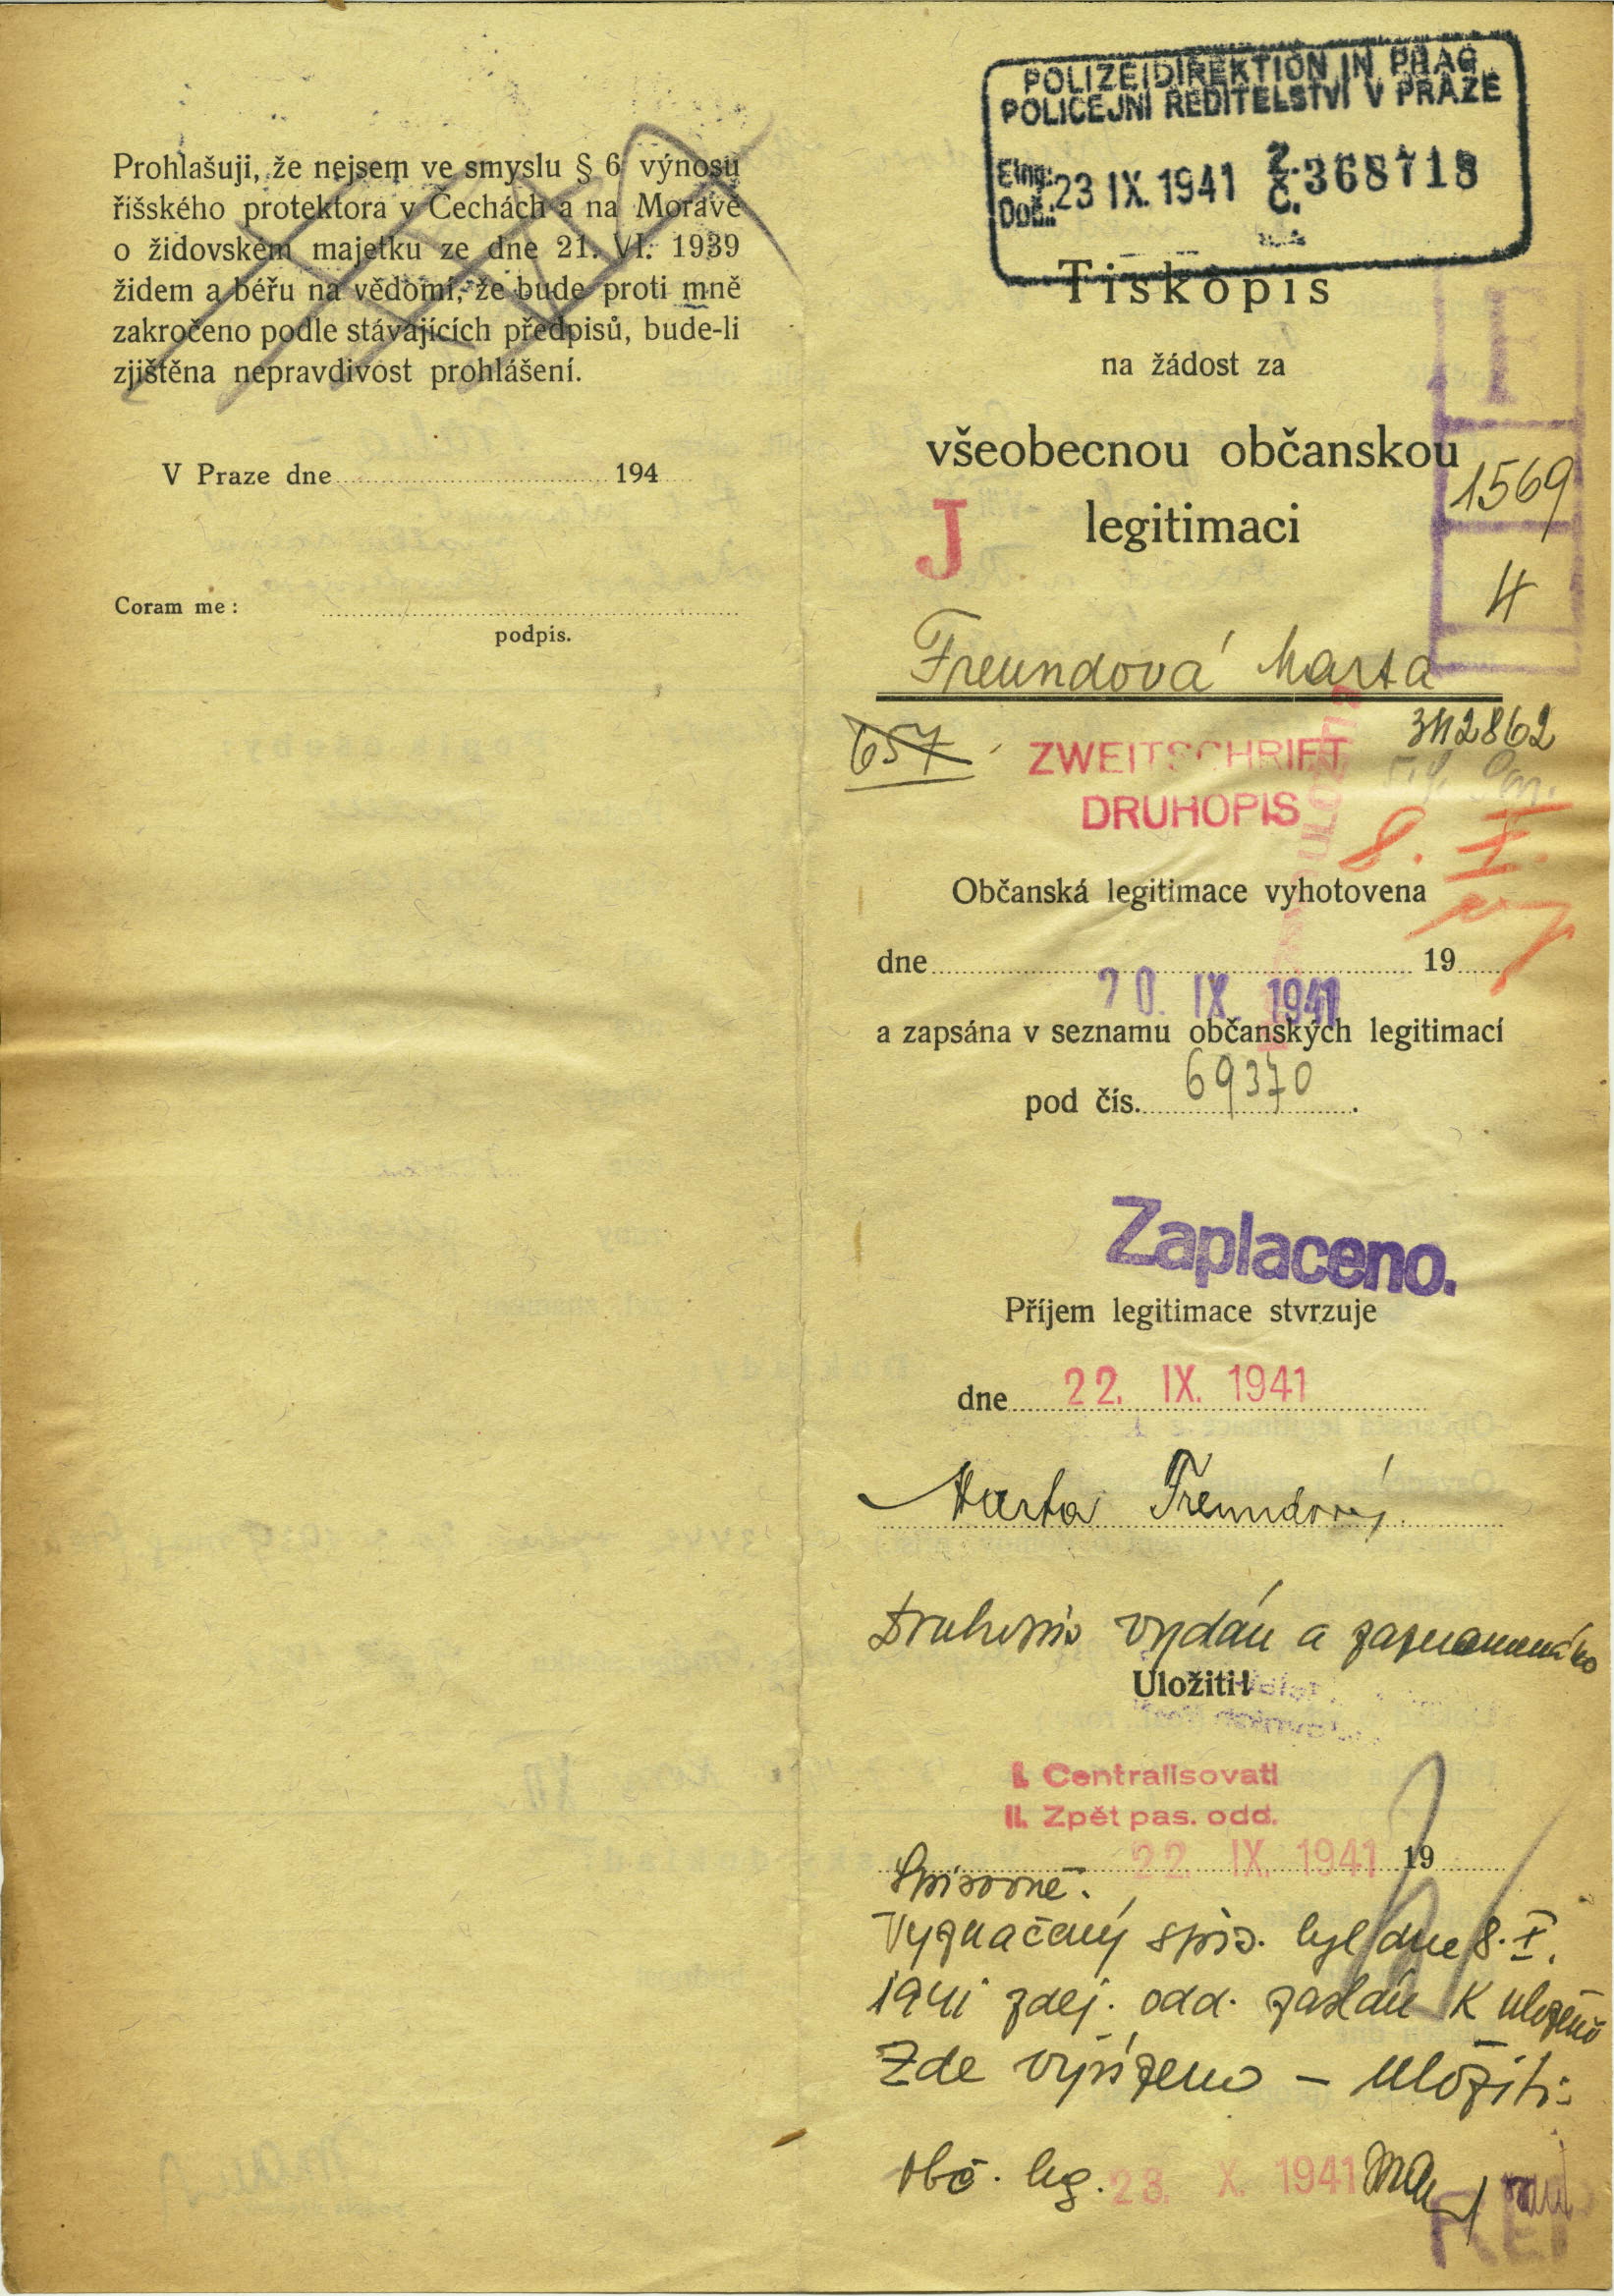 Prohlašuji, že nejsem ve smyslu § 6 výnosu
říšského protektora v Čechách a na Moravě
o židovském majetku ze dne 21. VI. 1939
židem a béřu na vědomí, že bude proti mně
zakročeno podle stávajících předpisů, bude-li
zjištěna nepravdivost prohlášení.
V Praze dne 194
Coram me :
podpis.
POLIZEIDIREKTION IN PRAG
POLICEJNÍ ŘEDITELSTVÍ V PRAZE
Eing.: Z.
Doš.: 23 IX. 1941 Č. 368718
Tiskopis
na žádost za
všeobecnou občanskou
legitimaci
J
F
1569
4
Freundová Marta
657
342862
ZWEITSCHRIFT
DRUHOPIS
8. X.
Občanská legitimace vyhotovena
dne 19
20. IX. 1941
a zapsána v seznamu občanských legitimací
pod čís. 69370.
Zaplaceno.
Příjem legitimace stvrzuje
dne 22. IX. 1941
Marta Freundová
Druhopis vydán a zaznamenáno
Uložiti!
I. Centralisovati
II. Zpět pas. odd.
22. IX. 1941 19
Spisovně.
Vyznačený spis. byl dne 8. X.
1941 zdej. odd. zaslán k uložení
Zde vyřízeno – uložiti:
Obč. leg. 23. X. 1941
REP